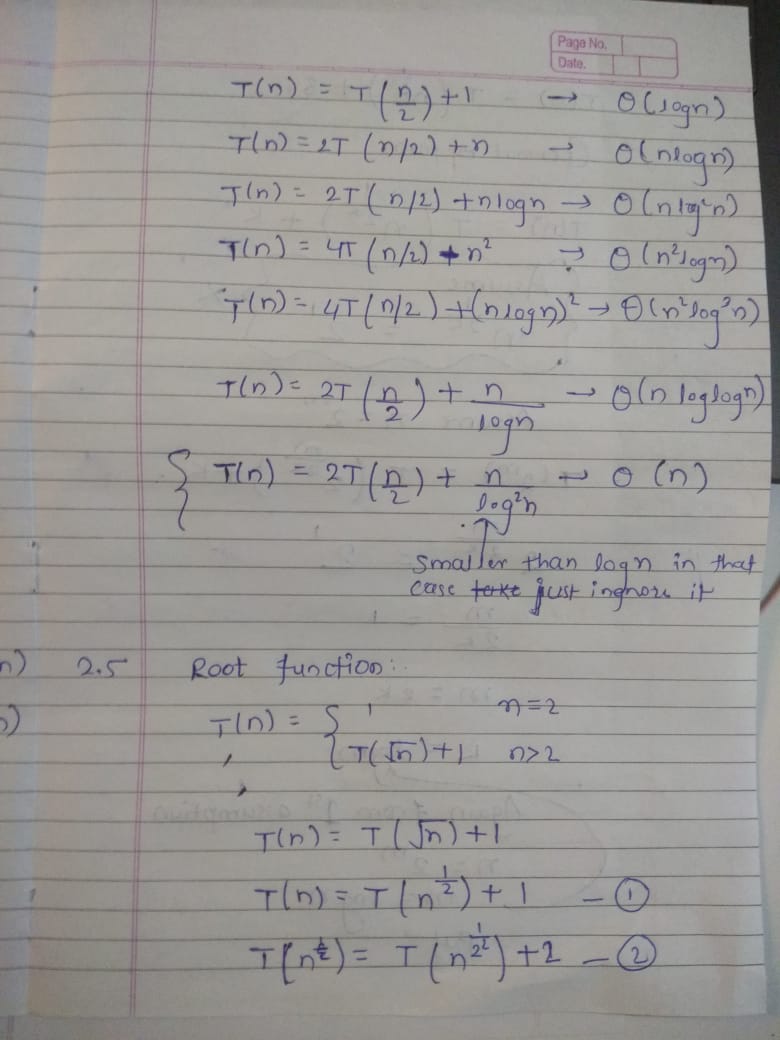 Page No.
Date.
T(n) = T(n/2) + 1 → θ(logn)
T(n) = 2T(n/2) + n → θ(nlogn)
T(n) = 2T(n/2) + nlogn → θ(nlog²n)
T(n) = 4T(n/2) + n² → θ(n²logn)
T(n) = 4T(n/2) + (nlogn)² → θ(n²log³n)
T(n) = 2T(n/2) + n/logn → θ(n loglogn)
T(n) = 2T(n/2) + n/log²n → θ(n)
smaller than logn in that
case just inghore it
n) 2.5 Root function:
T(n) = { 1 n=2
T(√n)+1 n>2
T(n) = T(√n)+1
T(n) = T(n^(1/2)) + 1 — ①
T(n^(1/2)) = T(n^(1/2²)) + 2 — ②